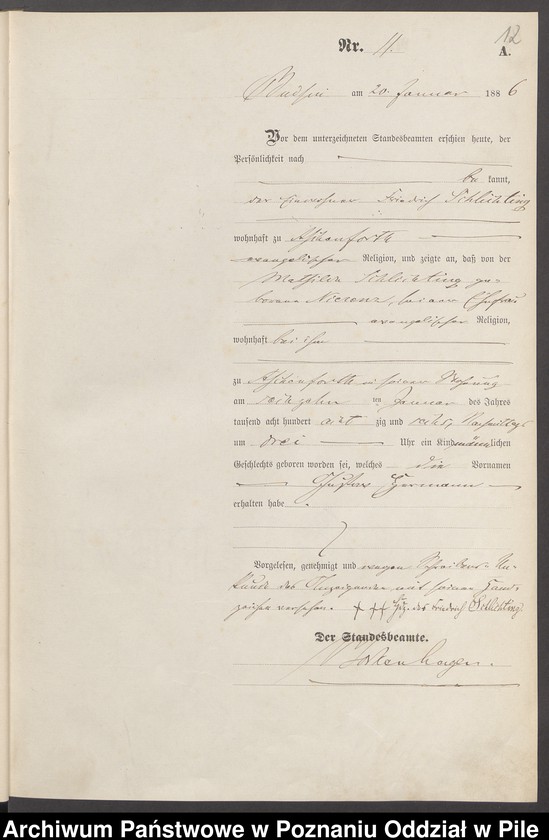 12
Nr. 11.
A.
am 20. Januar 1886
Vor dem unterzeichneten Standesbeamten erschien heute, der
Persönlichkeit nach
be kannt,
der Einwohner Friedrich Schlichting
wohnhaft zu
evangelischer Religion, und zeigte an, daß von der
Mathilde Schlichting ge-
borene seiner Ehefrau
evangelischer Religion,
wohnhaft bei ihm
zu in seiner Wohnung
am ten Januar des Jahres
tausend acht hundert acht zig und sechs, Nachmittags
um drei Uhr ein Kind männlichen
Geschlechts geboren worden sei, welches die Vornamen
Gustav Hermann
erhalten habe.
Vorgelesen, genehmigt und wegen Schreibens-Un-
kunde des Anzeigenden mit seinem Hand-
zeichen versehen. +++ Hdz. des Friedrich Schlichting
Der Standesbeamte.
Archiwum Państwowe w Poznaniu Oddział w Pile